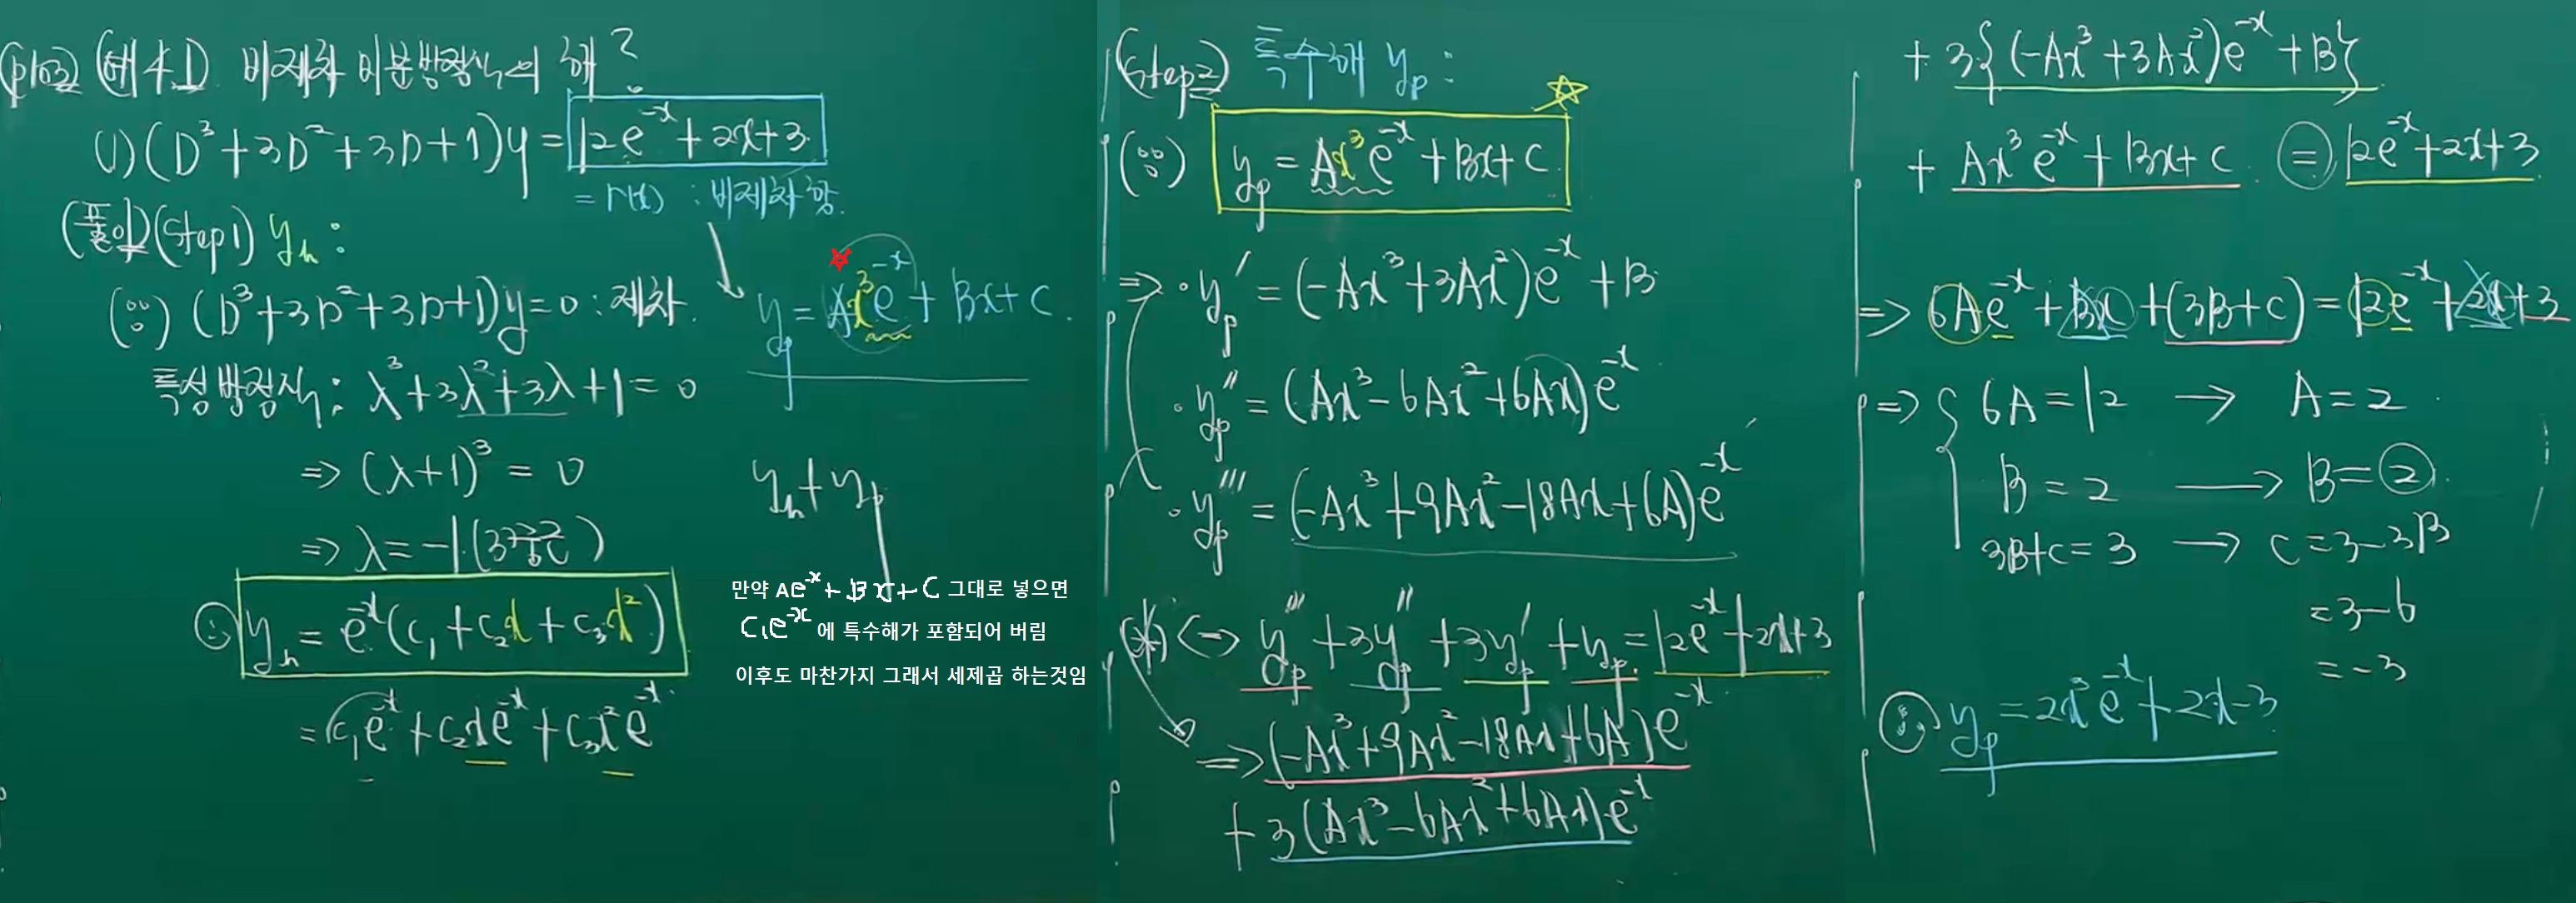 (p103) (예4.1) 비제차 미분방정식의 해?
(1) (D³+3D²+3D+1)y = 12e^{-x}+2x+3
= r(x) : 비제차항.
(풀이) (Step1) y_h :
(∵) (D³+3D²+3D+1)y=0 : 제차.
y_p = Ax³e^{-x} + Bx+C.
특성방정식 : λ³+3λ²+3λ+1=0
⇒ (λ+1)³ = 0
⇒ λ=-1 (3중근)
y_h+y_p
∴ y_h = e^{-x}(c₁+c₂x+c₃x²)
= c₁e^{-x}+c₂xe^{-x}+c₃x²e^{-x}
만약 Ae^{-x}+Bx+C 그대로 넣으면
C₁e^{-x} 에 특수해가 포함되어 버림
이후도 마찬가지 그래서 세제곱 하는것임
(Step2) 특수해 y_p :
☆
(∵) y_p = Ax³e^{-x}+Bx+C
⇒ · y_p' = (-Ax³+3Ax²)e^{-x}+B
· y_p'' = (Ax³-6Ax²+6Ax)e^{-x}
· y_p''' = (-Ax³+9Ax²-18Ax+6A)e^{-x}
(*) ⇔ y_p'''+3y_p''+3y_p'+y_p=12e^{-x}+2x+3
⇒ (-Ax³+9Ax²-18Ax+6A)e^{-x}
+ 3(Ax³-6Ax²+6Ax)e^{-x}
+ 3{(-Ax³+3Ax²)e^{-x}+B}
+ Ax³e^{-x}+Bx+C = 12e^{-x}+2x+3
⇒ 6Ae^{-x}+Bx+(3B+C)=12e^{-x}+2x+3
⇒ { 6A=12 → A=2
B=2 → B=2
3B+C=3 → C=3-3B
=3-6
=-3
∴ y_p=2x³e^{-x}+2x-3